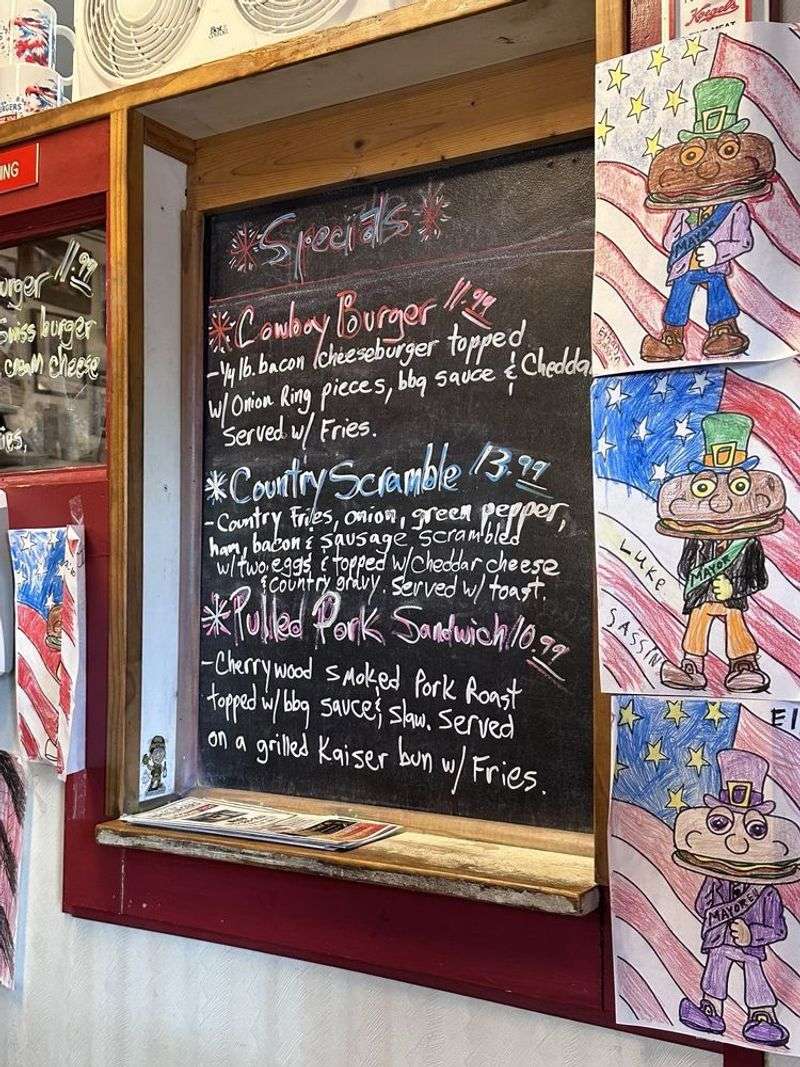 Koegel's
MEAT
BURGERS
NING
urger 11.99
Swiss burger
cream cheese
ies,
*Specials*
*Cowboy Burger 11.99
-1/4 lb. bacon cheeseburger topped
w/ Onion Ring pieces, bbq sauce & Chedda
Served w/ Fries.
*Country Scramble 13.99
-Country Fries, onion, green pepper,
ham, bacon & sausage scrambled
w/ two eggs & topped w/ Cheddar cheese
& country gravy. Served w/ toast.
*Pulled Pork Sandwich 10.99
-Cherrywood smoked Pork Roast
topped w/ bbq sauce & slaw. Served
on a grilled Kaiser bun w/ Fries.
MAYOR
MAYOR
LUKE
SASSIN
El
MAYOR